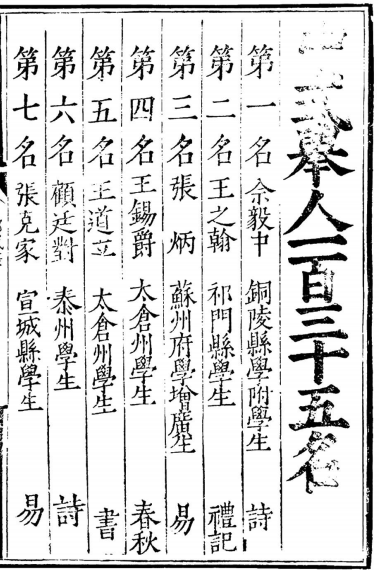 中式舉人一百三十五名
第一名 余毅中 銅陵縣學附學生 詩
第二名 王之翰 祁門縣學生 禮記
第三名 張炳 蘇州府學增廣生 易
第四名 王錫爵 太倉州學生 春秋
第五名 王道立 太倉州學生 書
第六名 顧廷對 泰州學生 詩
第七名 張克家 宣城縣學生 易